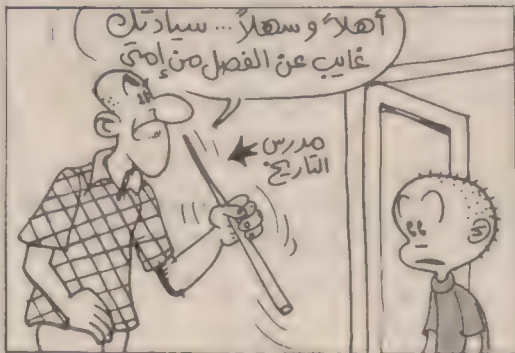 أهلاً و سهلاً... سيادتك
غايب عن الفصل من إمتى
مدرس
التاريخ